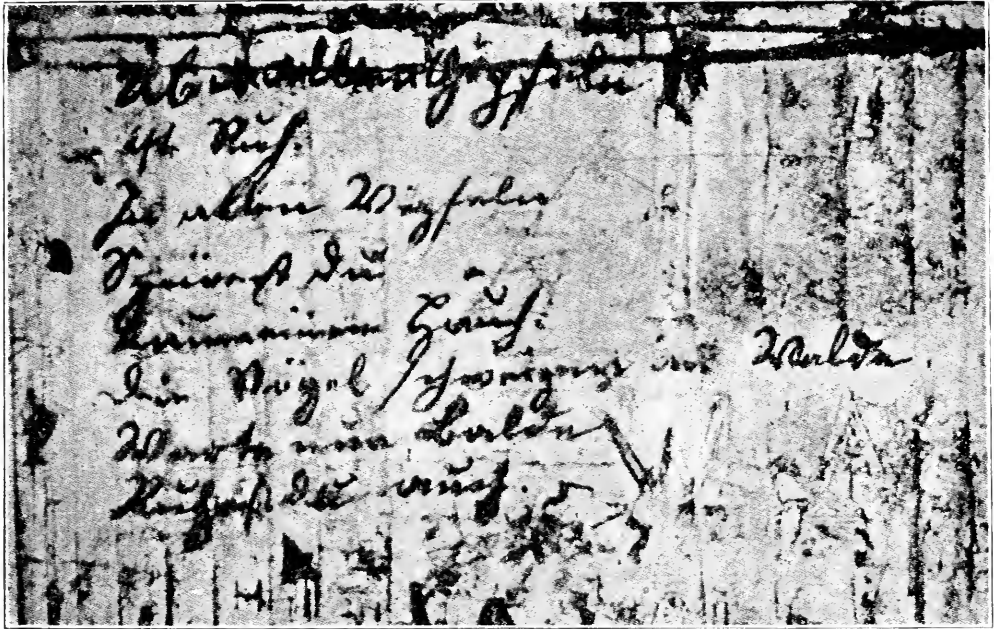 Über allen Gipfeln
ist Ruh.
In allen Wipfeln
Spürest du
Kaum einen Hauch:
Die Vögel schweigen im Walde.
Warte nur Balde
Ruhest du auch.